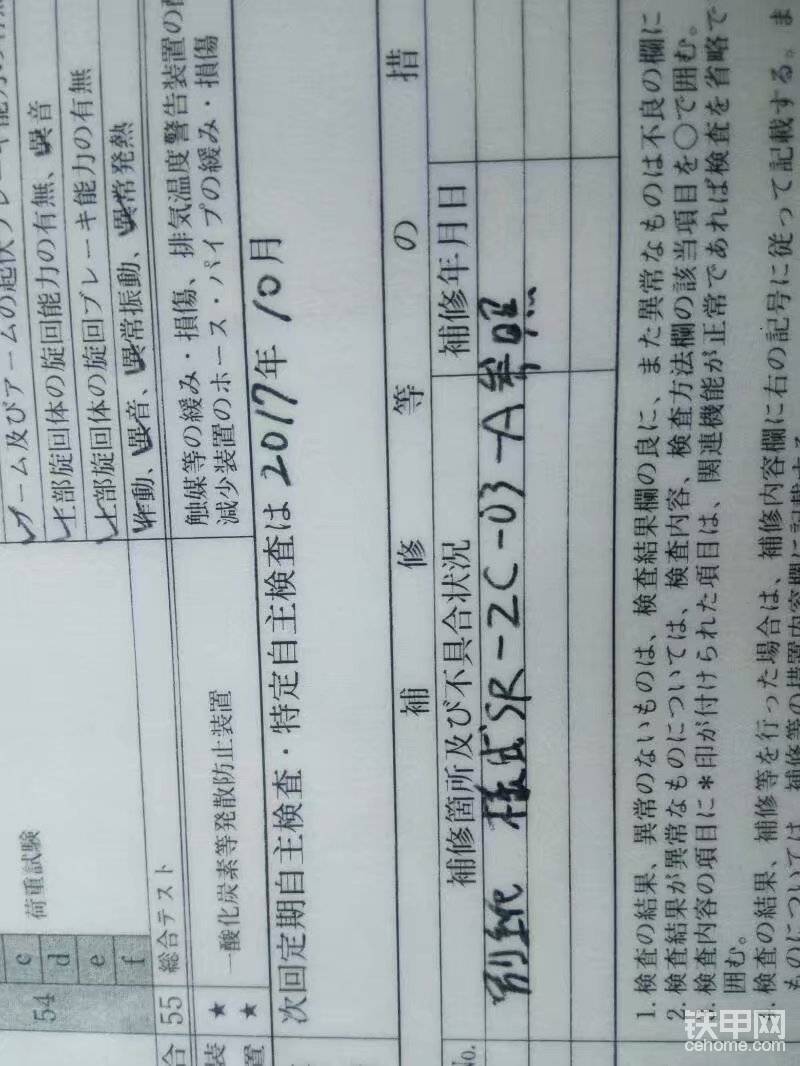 ーム及びアームの起伏ブレーキ能力の有無
c
54 d 荷重試験
上部旋回体の旋回能力の有無、異音
e
上部旋回体の旋回ブレーキ能力の有無
f
55 総合テスト
作動、異音、異常振動、異常発熱
★
★
一酸化炭素等発散防止装置
触媒等の緩み・損傷、排気温度警告装置の
減少装置のホース・パイプの緩み・損傷
次回定期自主検査・特定自主検査は 2017年 10月
補修等の措
No.
補修箇所及び不具合状況
補修年月日
別紙 様式SR-ZC-03-A参照
1. 検査の結果、異常のないものは、検査結果欄の良に、また異常なものは不良の欄に
2. 検査結果が異常なものについては、検査内容、検査方法欄の該当項目を○で囲む。
3. 検査内容の項目に*印が付けられた項目は、関連機能が正常であれば検査を省略で
囲む。
4. 検査の結果、補修等を行った場合は、補修内容欄に右の記号に従って記載する。ま
ものについては、補修等の措置内容欄に記載する
铁甲网
cehome.com